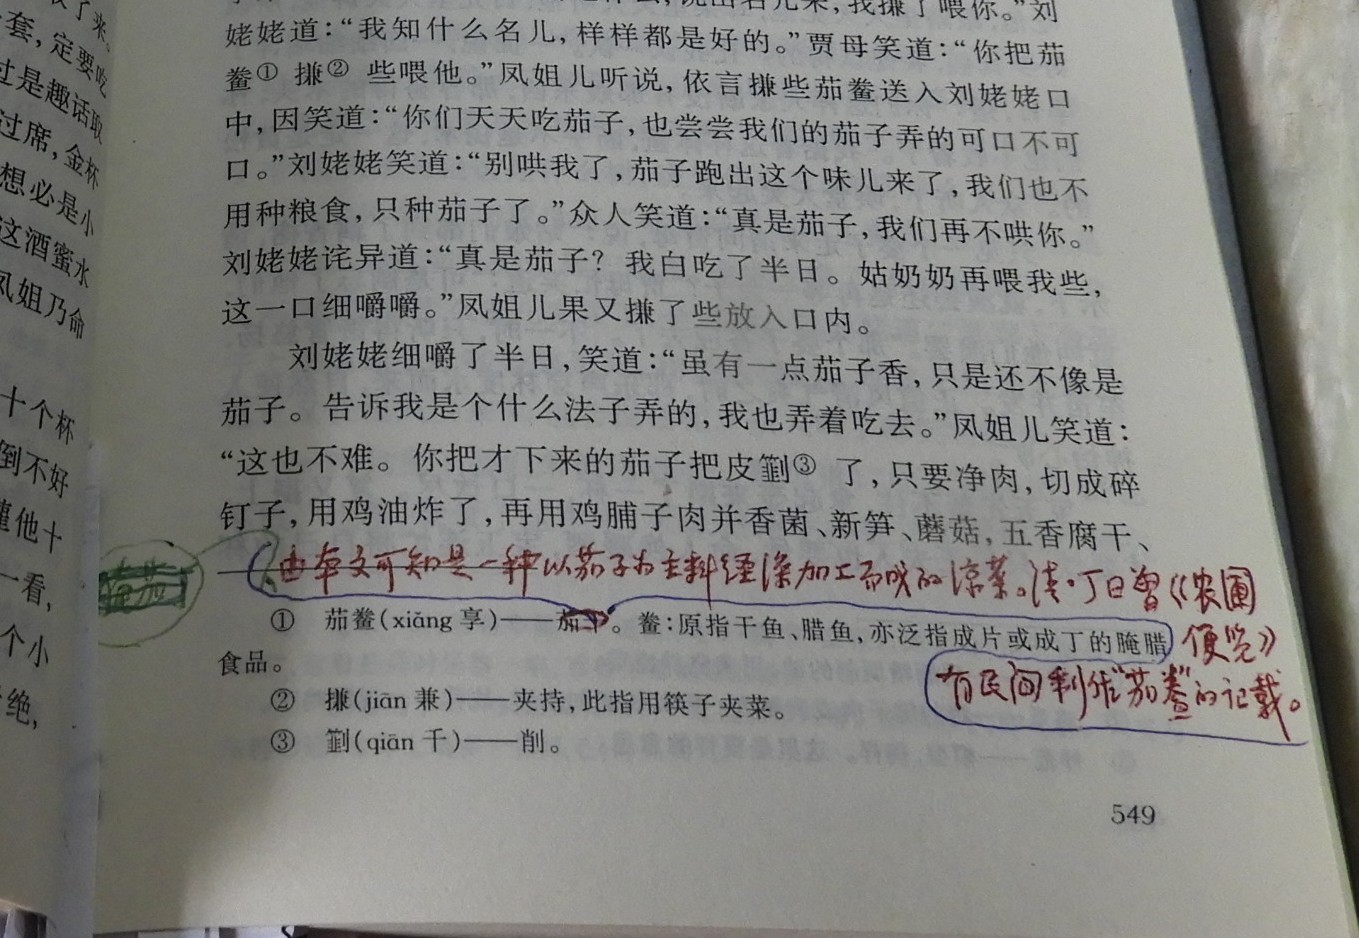 来。
套，定要吃
过是趣话取
过席，金杯
想必是小
这酒蜜水
凤姐乃命
十个杯
倒不好
灌他十
一看，
个小
绝，
说出名儿来，我搛了喂你。”刘
姥姥道：“我知什么名儿，样样都是好的。”贾母笑道：“你把茄
鲞① 搛② 些喂他。”凤姐儿听说，依言搛些茄鲞送入刘姥姥口
中，因笑道：“你们天天吃茄子，也尝尝我们的茄子弄的可口不可
口。”刘姥姥笑道：“别哄我了，茄子跑出这个味儿来了，我们也不
用种粮食，只种茄子了。”众人笑道：“真是茄子，我们再不哄你。”
刘姥姥诧异道：“真是茄子？我白吃了半日。姑奶奶再喂我些，
这一口细嚼嚼。”凤姐儿果又搛了些放入口内。
刘姥姥细嚼了半日，笑道：“虽有一点茄子香，只是还不像是
茄子。告诉我是个什么法子弄的，我也弄着吃去。”凤姐儿笑道：
“这也不难。你把才下来的茄子把皮劖③ 了，只要净肉，切成碎
钉子，用鸡油炸了，再用鸡脯子肉并香菌、新笋、蘑菇，五香腐干、
由本文可知是一种以茄子为主料经深加工而成的凉菜。清·丁曰曾《农圃
便览》
有民间制作“茄鲞”的记载。
① 茄鲞（xiǎng 享）——茄。鲞：原指干鱼、腊鱼，亦泛指成片或成丁的腌腊
食品。
② 搛（jiān 兼）——夹持，此指用筷子夹菜。
③ 劖（qiān 千）——削。
549